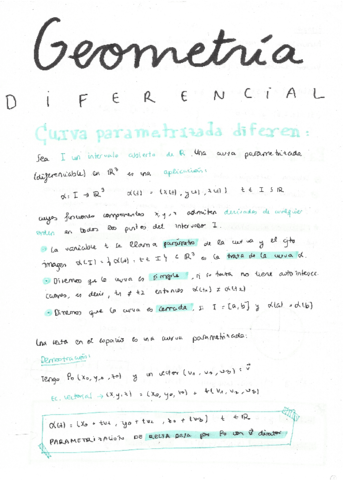 Geometría
DIFERENCIAL
Curva parametrizada diferen:
Sea I un intervalo abierto de R. Una curva parametrizada
(diferenciable) en R³ es una aplicación:
α: I → R³ α(t) = (x(t), y(t), z(t)) t ∈ I ⊆ R
cuyas funciones componentes x, y, z admiten derivadas de cualquier
orden en todos los puntos del intervalo I.
La variable t se llama parámetro de la curva y el cjto
imagen α(I) = {α(t): t ∈ I} ⊆ R³ es la traza de la curva α.
Diremos que la curva es simple, si su traza no tiene autointersec
ciones, es decir, t₁ ≠ t₂ entonces α(t₁) ≠ α(t₂)
Diremos que la curva es cerrada, si I = [a, b] y α(a) = α(b)
Una recta en el espacio es una curva parametrizada:
Demostración:
Tengo P₀(x₀, y₀, z₀) y un vector (v₁, v₂, v₃) = v⃗
Ec. vectorial → (x, y, z) = (x₀, y₀, z₀) + t(v₁, v₂, v₃)
α(t) = (x₀ + tv₁, y₀ + tv₂, z₀ + tv₃) t ∈ R
PARAMETRIZACIÓN DE RECTA DADA por P₀ con v⃗ director